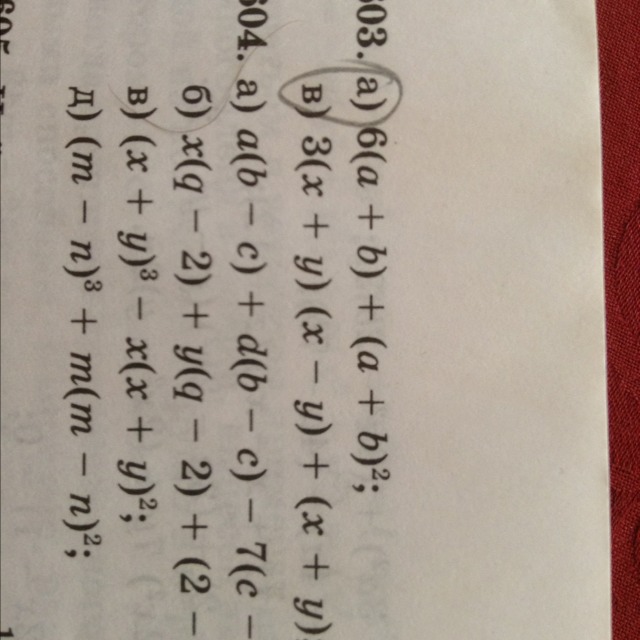 603. а) 6(a + b) + (a + b)²;
в) 3(x + y)(x − y) + (x + y)
604. а) a(b − c) + d(b − c) − 7(c −
б) x(q − 2) + y(q − 2) + (2 −
в) (x + y)³ − x(x + y)²;
д) (m − n)³ + m(m − n)²;